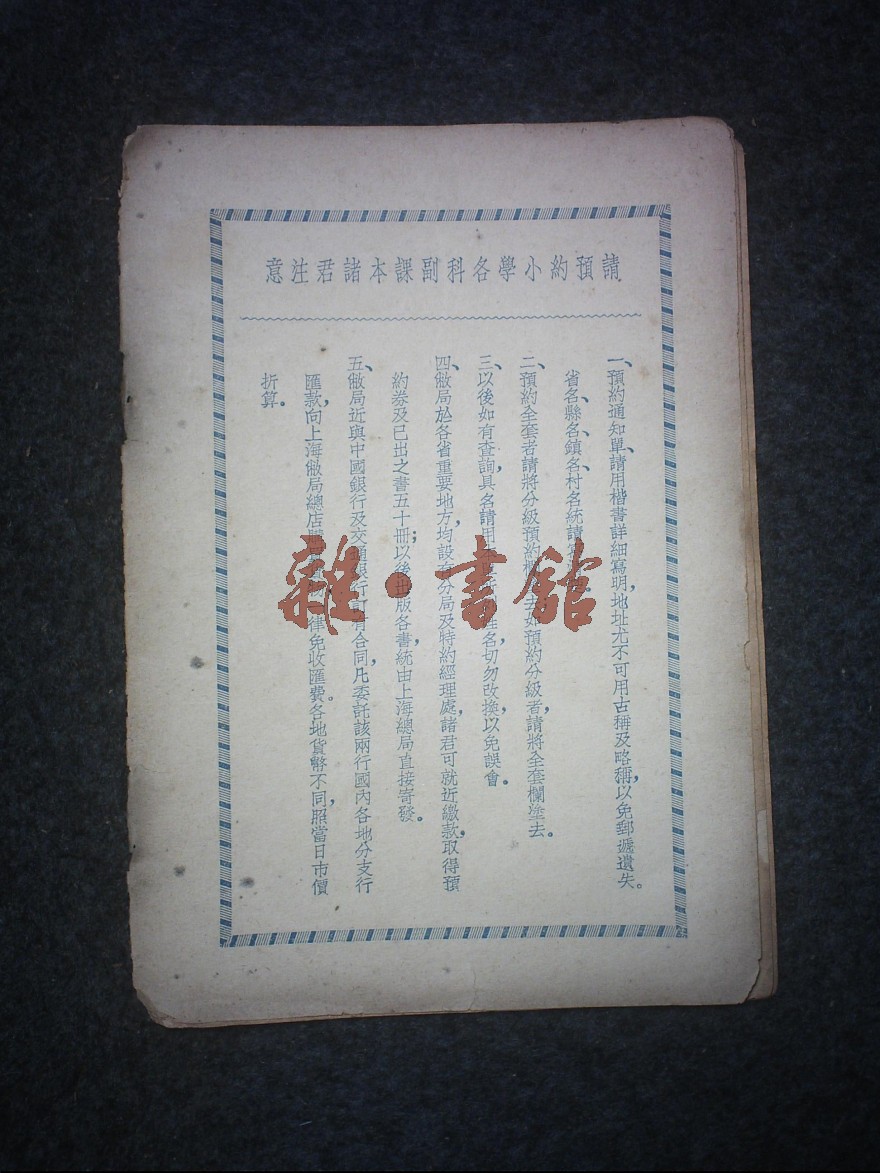 請預約小學各科副課本諸君注意
一、預約通知單、請用楷書詳細寫明，地址尤不可用古稱及略稱，以免郵遞遺失。
省名、縣名、鎮名、村名統請
二、預約全套者請將分級預約欄去如預約分級者，請將全套欄塗去。
三、以後如有查詢，具名請用姓名，切勿改換，以免誤會。
四、敝局於各省重要地方，均設分局及特約經理處，諸君可就近繳款，取得預
約券及已出之書五十冊；以後出版各書，統由上海總局直接寄發。
五、敝局近與中國銀行及交通銀行訂有合同，凡委託該兩行國內各地分支行
匯款，向上海敝局總店律免收匯費。各地貨幣不同，照當日市價
折算。
雜·書館